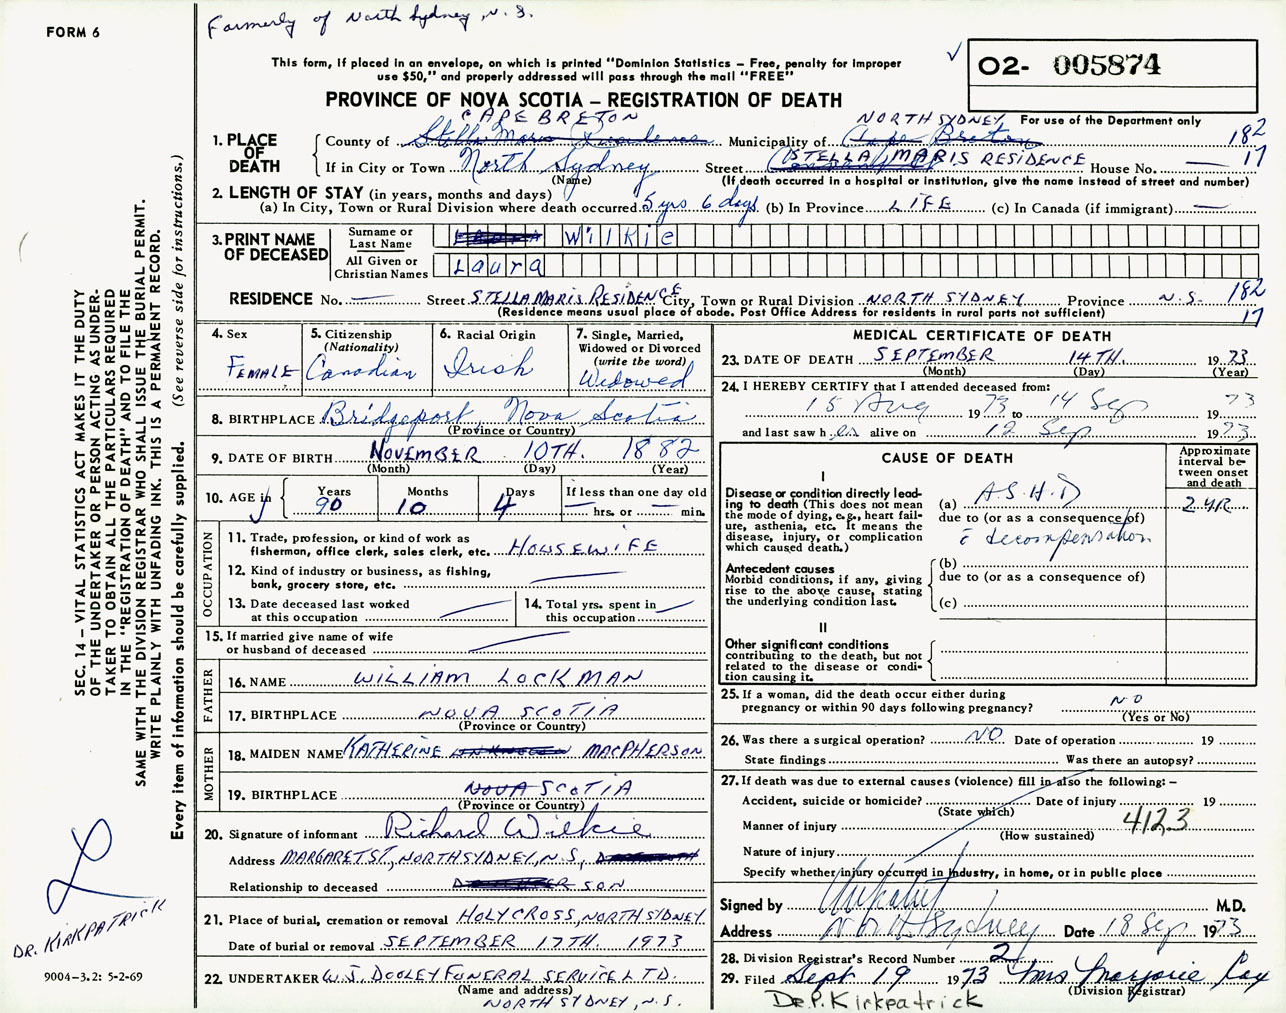 FORM 6
Formerly of North Sydney, N.S.
This form, if placed in an envelope, on which is printed "Dominion Statistics – Free, penalty for improper
use $50," and properly addressed will pass through the mail "FREE"
O2- 005874
PROVINCE OF NOVA SCOTIA – REGISTRATION OF DEATH
For use of the Department only
CAPE BRETON NORTH SYDNEY
1. PLACE OF DEATH
County of Stella Maris Residence Municipality of Cape Breton 182
If in City or Town North Sydney Street STELLA MARIS RESIDENCE House No. — 17
(Name) (If death occurred in a hospital or institution, give the name instead of street and number)
2. LENGTH OF STAY (in years, months and days)
(a) In City, Town or Rural Division where death occurred 5 yrs 6 days (b) In Province LIFE (c) In Canada (if immigrant) —
3. PRINT NAME OF DECEASED
Surname or Last Name Wilkie
All Given or Christian Names Laura
RESIDENCE No. — Street STELLA MARIS RESIDENCE City, Town or Rural Division NORTH SYDNEY Province N.S. 182
(Residence means usual place of abode. Post Office Address for residents in rural parts not sufficient) 17
4. Sex
FEMALE
5. Citizenship
(Nationality)
Canadian
6. Racial Origin
Irish
7. Single, Married,
Widowed or Divorced
(write the word)
Widowed
8. BIRTHPLACE Bridgeport, Nova Scotia
(Province or Country)
9. DATE OF BIRTH NOVEMBER 10TH. 1882
(Month) (Day) (Year)
10. AGE in
Years 90
Months 10
Days 4
If less than one day old
— hrs. or — min.
OCCUPATION
11. Trade, profession, or kind of work as
fisherman, office clerk, sales clerk, etc. HOUSEWIFE
12. Kind of industry or business, as fishing,
bank, grocery store, etc.
13. Date deceased last worked
at this occupation
14. Total yrs. spent in
this occupation
15. If married give name of wife
or husband of deceased
FATHER
16. NAME WILLIAM LOCKMAN
17. BIRTHPLACE NOVA SCOTIA
(Province or Country)
MOTHER
18. MAIDEN NAME KATHERINE MACPHERSON
19. BIRTHPLACE NOVA SCOTIA
(Province or Country)
20. Signature of informant Richard Wilkie
Address MARGARET ST., NORTH SYDNEY, N.S.,
Relationship to deceased SON
21. Place of burial, cremation or removal HOLY CROSS, NORTH SYDNEY
Date of burial or removal SEPTEMBER 17TH. 1973
22. UNDERTAKER W.J. DOOLEY FUNERAL SERVICE LTD.
(Name and address)
NORTH SYDNEY, N.S.
MEDICAL CERTIFICATE OF DEATH
23. DATE OF DEATH SEPTEMBER 14TH. 1973
(Month) (Day) (Year)
24. I HEREBY CERTIFY that I attended deceased from:
15 Aug 1973 to 14 Sep 1973
and last saw her alive on 12 Sep 1973
CAUSE OF DEATH
Approximate
interval be-
tween onset
and death
I
Disease or condition directly lead-
ing to death (This does not mean
the mode of dying, e.g., heart fail-
ure, asthenia, etc. It means the
disease, injury, or complication
which caused death.)
(a) A.S.H.D 2 YR
due to (or as a consequence of)
c̄ decompensation
Antecedent causes
Morbid conditions, if any, giving
rise to the above cause, stating
the underlying condition last.
(b)
due to (or as a consequence of)
(c)
II
Other significant conditions
contributing to the death, but not
related to the disease or condi-
tion causing it.
25. If a woman, did the death occur either during
pregnancy or within 90 days following pregnancy? NO
(Yes or No)
26. Was there a surgical operation? NO Date of operation 19
State findings Was there an autopsy?
27. If death was due to external causes (violence) fill in also the following: –
Accident, suicide or homicide? Date of injury 19
(State which)
Manner of injury 4123
(How sustained)
Nature of injury
Specify whether injury occurred in industry, in home, or in public place
Signed by M.D.
Address North Sydney Date 18 Sep 1973
28. Division Registrar's Record Number 2
29. Filed Sept 19 1973 Mrs Marjorie Cox
(Division Registrar)
Dr. P. Kirkpatrick
SEC. 14 – VITAL STATISTICS ACT MAKES IT THE DUTY
OF THE UNDERTAKER OR PERSON ACTING AS UNDER-
TAKER TO OBTAIN ALL THE PARTICULARS REQUIRED
IN THE "REGISTRATION OF DEATH" AND TO FILE THE
SAME WITH THE DIVISION REGISTRAR WHO SHALL ISSUE THE BURIAL PERMIT.
WRITE PLAINLY WITH UNFADING INK. THIS IS A PERMANENT RECORD.
Every item of information should be carefully supplied. (See reverse side for instructions.)
DR. KIRKPATRICK
9004-3.2: 5-2-69